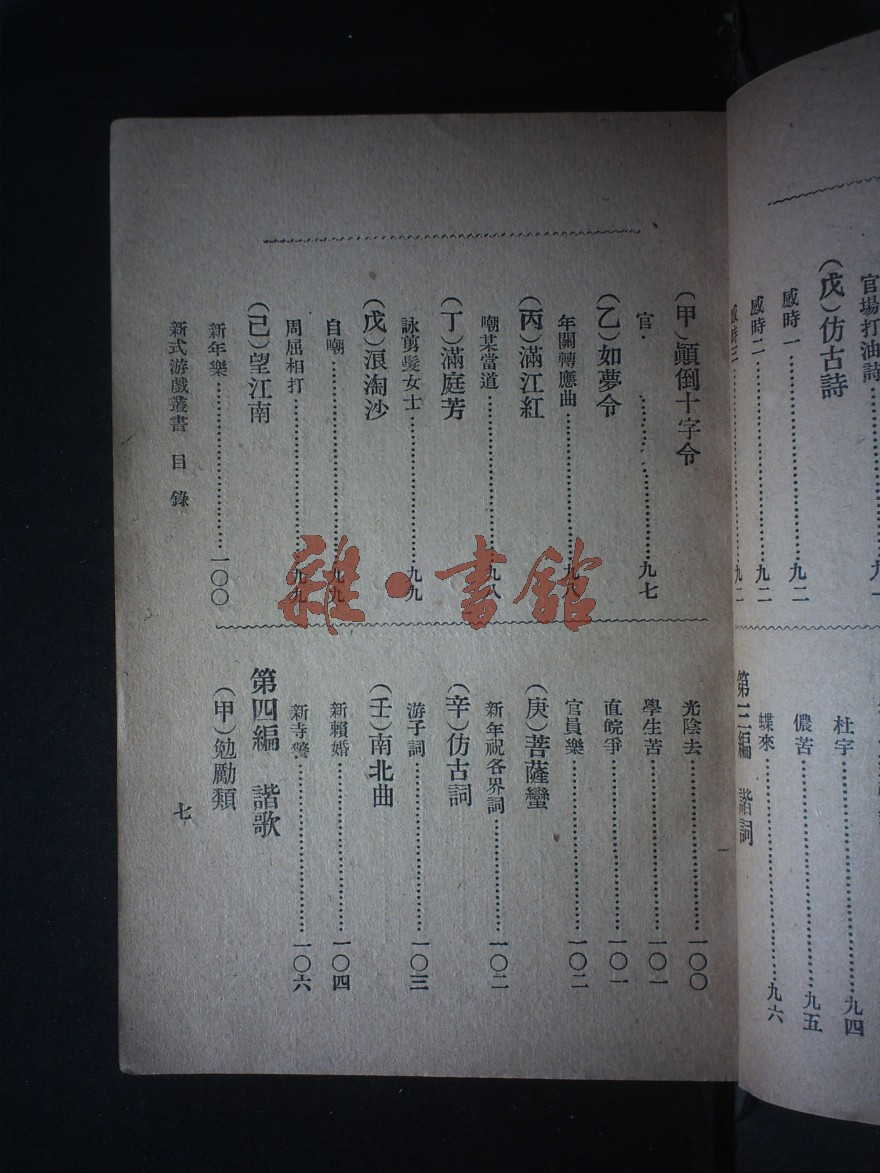 官場打油詩……九一
(戊)仿古詩
感時一……九二
感時二……九二
感時三……九二
杜宇……九四
儂苦……九五
蝶來……九六
第三編 諧詞
(甲)顚倒十字令
官……九七
(乙)如夢令
年關轉應曲……九八
(丙)滿江紅
嘲某當道……九八
(丁)滿庭芳
詠剪髮女士……九九
(戊)浪淘沙
自嘲……九九
周屈相打……九九
(己)望江南
新年樂……一〇〇
光陰去……一〇〇
學生苦……一〇一
直皖爭……一〇一
官員樂……一〇二
(庚)菩薩蠻
新年祝各界詞……一〇二
(辛)仿古詞
游子詞……一〇三
(壬)南北曲
新賴婚……一〇四
新寺警……一〇六
第四編 諧歌
(甲)勉勵類
新式游戲叢書 目錄
七
雜·書館